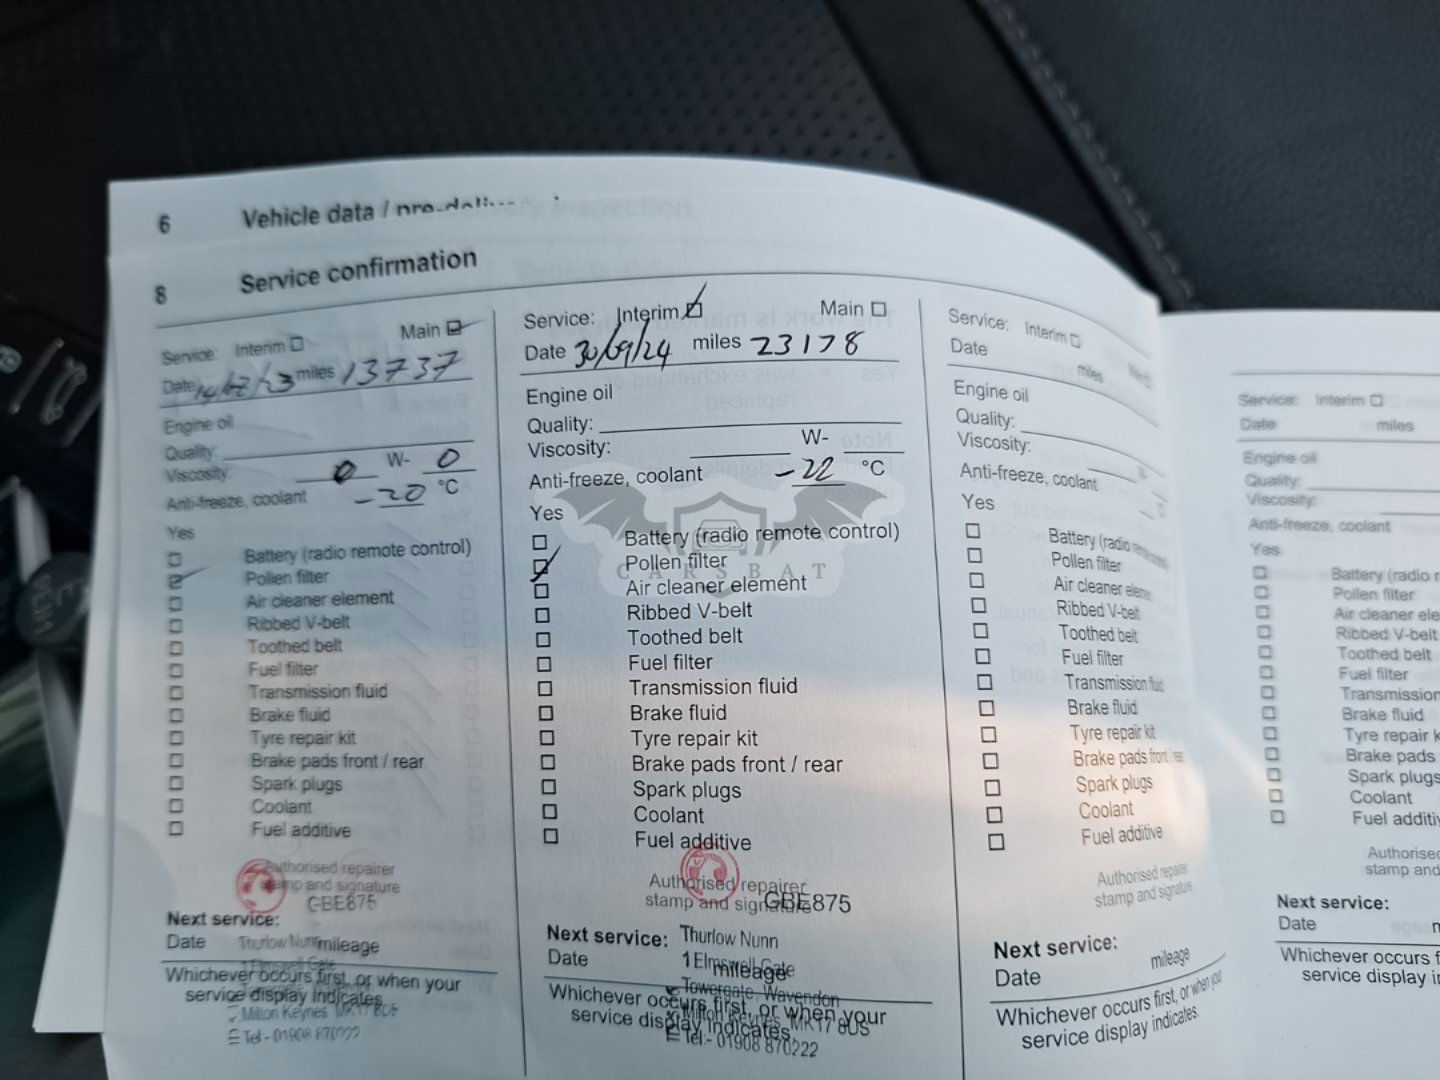 6 Vehicle data /
8 Service confirmation
Service: Interim Main
Date 14/02/23 miles 13737
Engine oil
Quality:
Viscosity: 0 W- 0
Anti-freeze, coolant -20 °C
Yes
Battery (radio remote control)
Pollen filter
Air cleaner element
Ribbed V-belt
Toothed belt
Fuel filter
Transmission fluid
Brake fluid
Tyre repair kit
Brake pads front / rear
Spark plugs
Coolant
Fuel additive
Authorised repairer
stamp and signature
GBE875
Next service:
Date mileage
Thurlow Nunn
1 Elmswell Gate
Whichever occurs first, or when your
service display indicates.
Milton Keynes MK17 8US
Tel:- 01908 870222
Service: Interim Main
Date 30/09/24 miles 23178
Engine oil
Quality:
Viscosity: W-
Anti-freeze, coolant -22 °C
Yes
Battery (radio remote control)
Pollen filter
CARSBAT
Air cleaner element
Ribbed V-belt
Toothed belt
Fuel filter
Transmission fluid
Brake fluid
Tyre repair kit
Brake pads front / rear
Spark plugs
Coolant
Fuel additive
Authorised repairer
stamp and signature
GBE875
Next service:
Thurlow Nunn
Date mileage
1 Elmswell Gate
Towergate, Wavendon
Whichever occurs first, or when your
service display indicates.
Milton Keynes, MK17 8US
Tel:- 01908 870222
Service: Interim
Date miles
Engine oil
Quality:
Viscosity:
Anti-freeze, coolant
Yes
Battery (radio
Pollen filter
Air cleaner element
Ribbed V-belt
Toothed belt
Fuel filter
Transmission fluid
Brake fluid
Tyre repair kit
Brake pads front / rear
Spark plugs
Coolant
Fuel additive
Authorised repairer
stamp and signature
Next service:
Date mileage
Whichever occurs first, or when your
service display indicates.
Service: Interim
Date miles
Engine oil
Quality:
Viscosity:
Anti-freeze, coolant
Yes
Battery (radio r
Pollen filter
Air cleaner ele
Ribbed V-belt
Toothed belt
Fuel filter
Transmission
Brake fluid
Tyre repair k
Brake pads
Spark plugs
Coolant
Fuel additiv
Authorised
stamp and
Next service:
Date m
Whichever occurs f
service display i